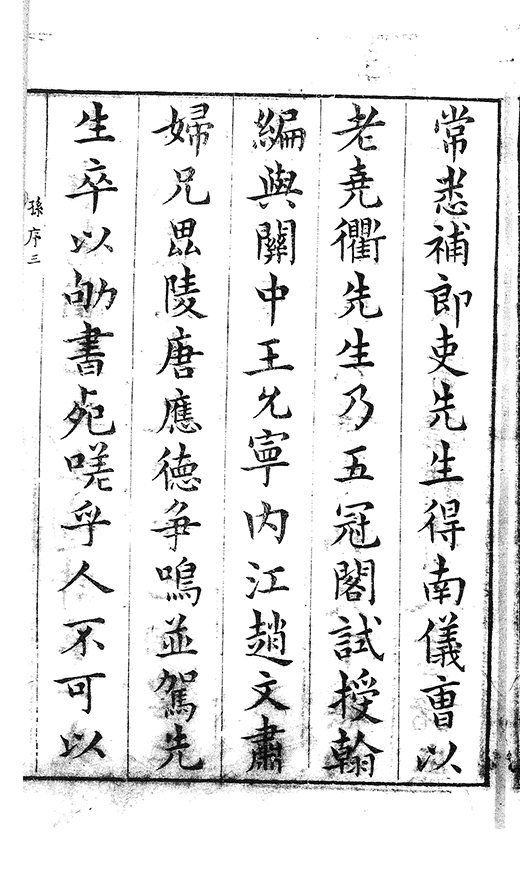 常悉補郎吏先生得南儀曺以
老堯衢先生乃五冠閣試授翰
編與關中王允寧内江趙文肅
婦兄毘陵唐應德争鳴並駕先
生卒以劬書死嗟乎人不可以
孫序三